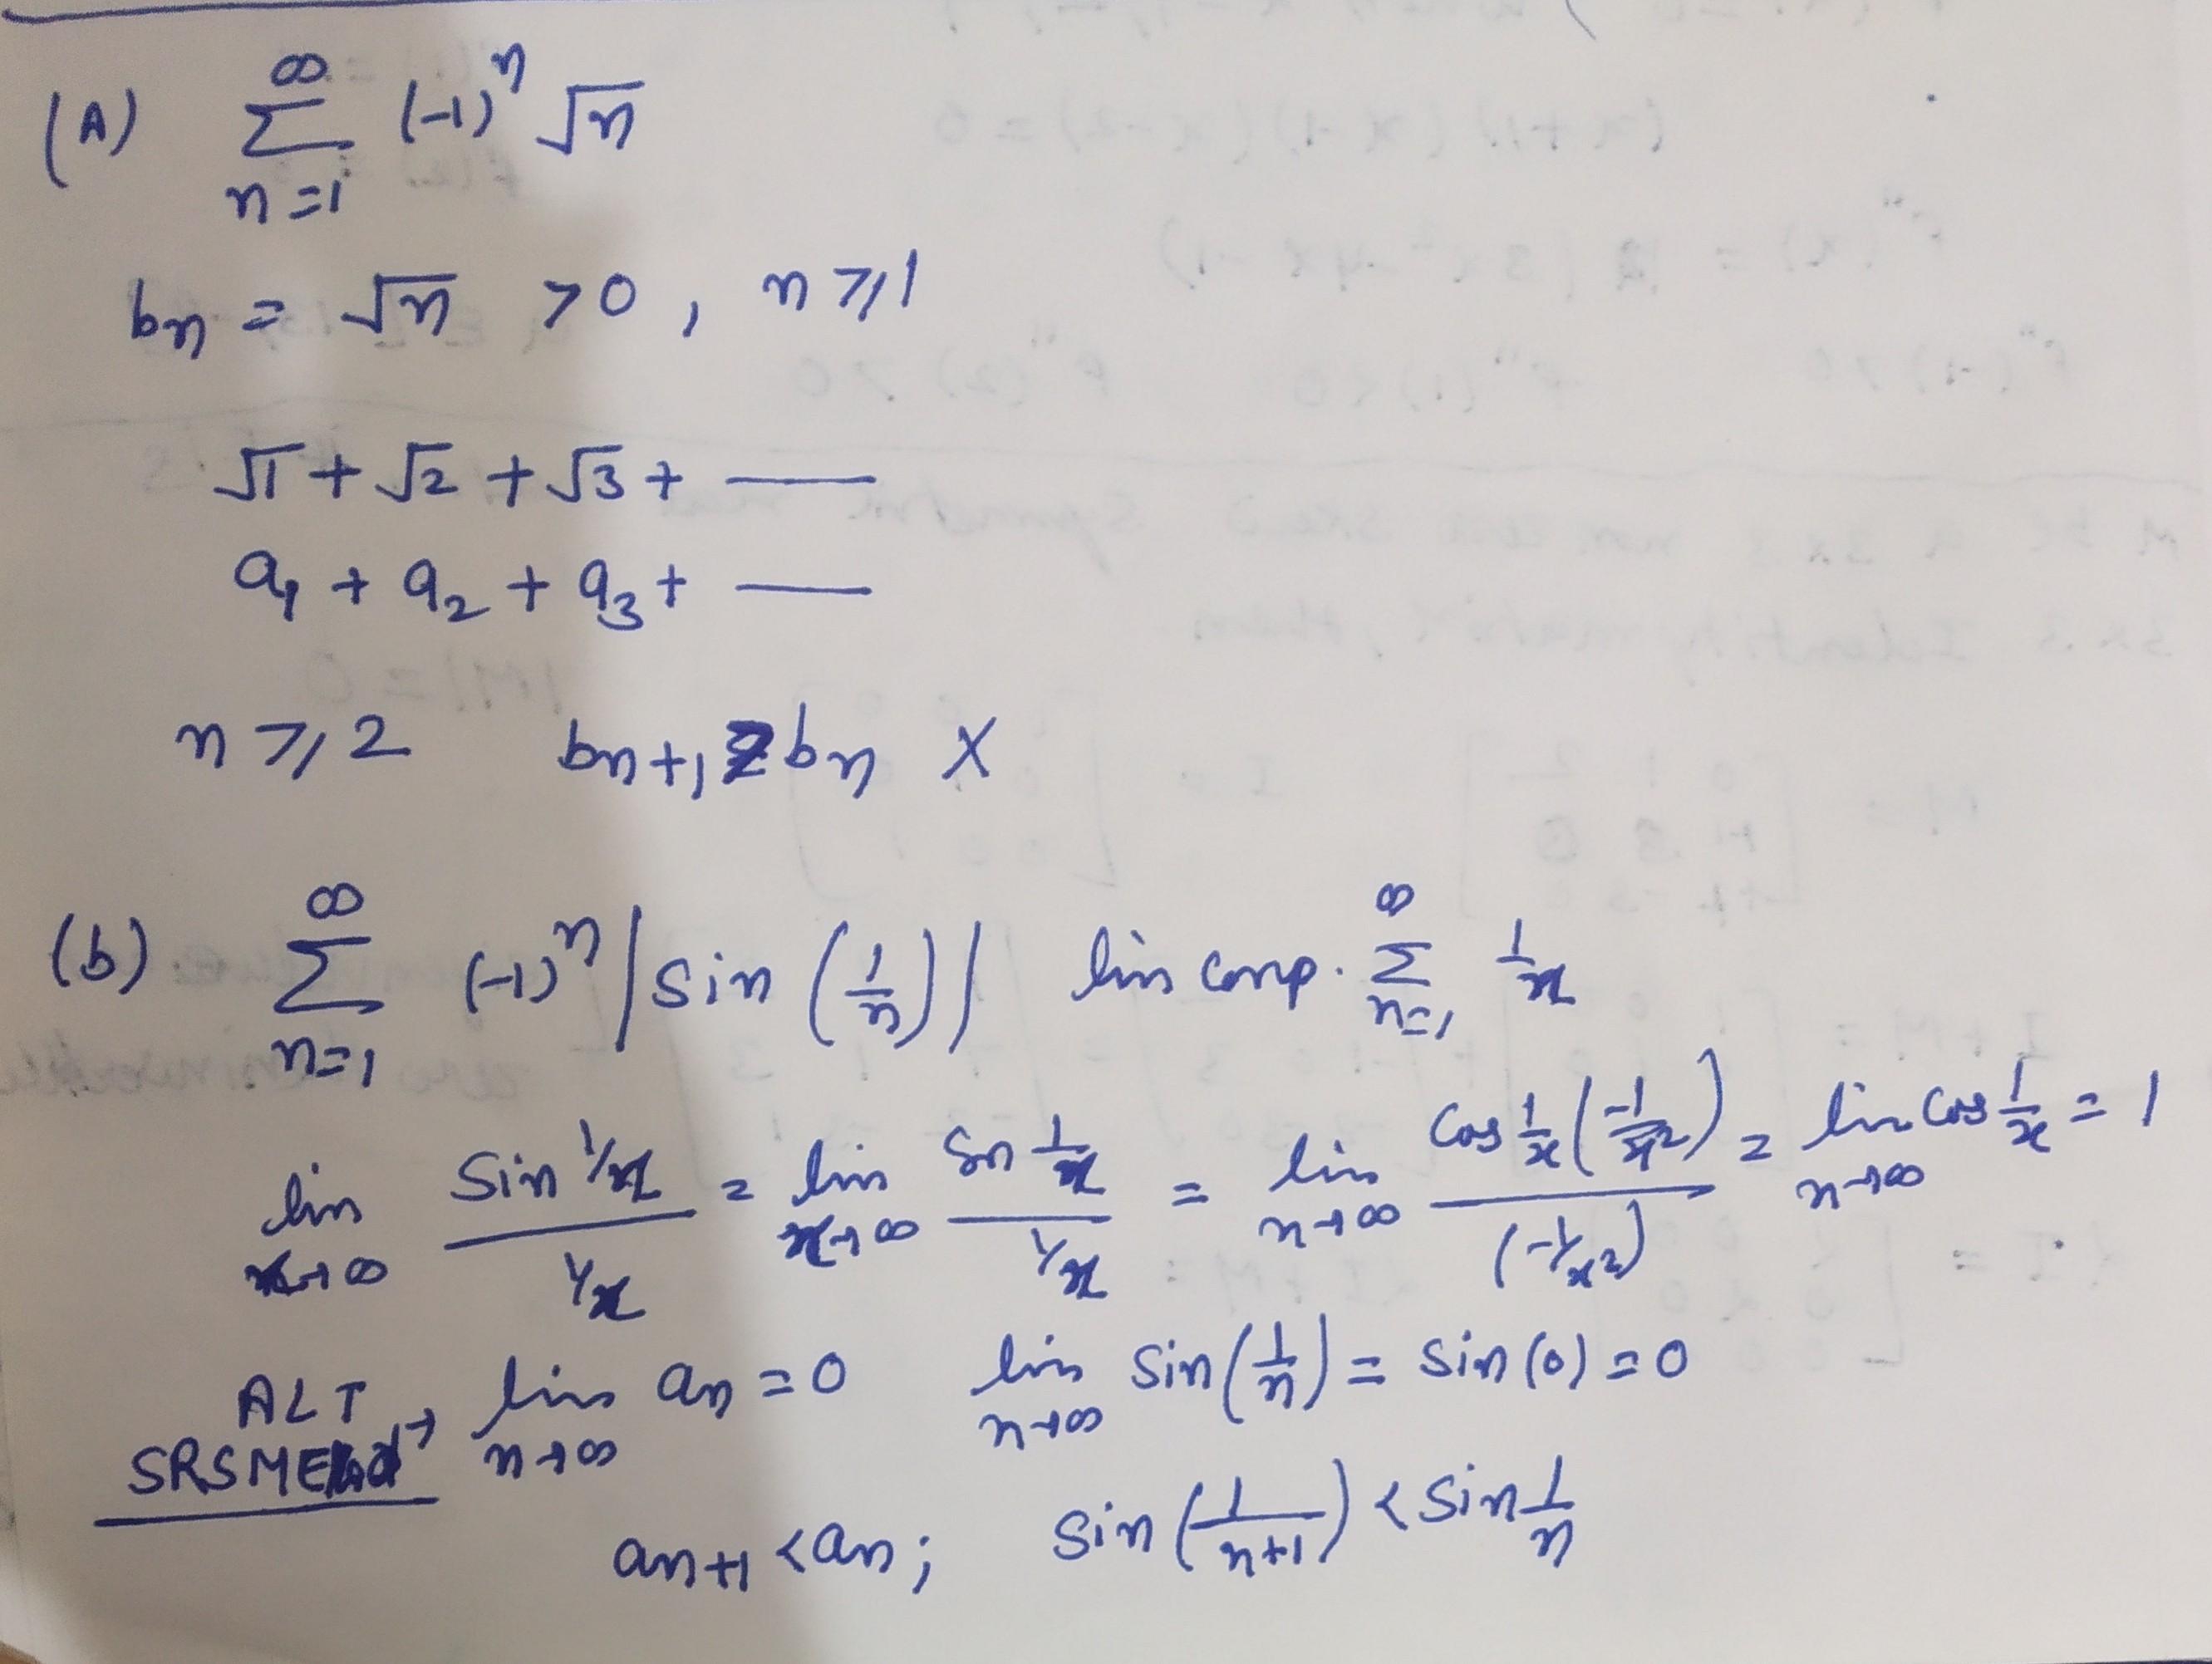 (A) ∞ Σ n=1 (-1)^n √n
bn = √n >0, n ≥ 1
√1 + √2 + √3 + —
a1 + a2 + a3 + —
n ≥ 2 bn+1 bn X
(b) ∞ Σ n=1 (-1)^n |sin (1/n)| lim comp. ∞ Σ n=1 1/x
lim x→∞ Sin 1/x / 1/x = lim x→∞ Sn 1/x / 1/x = lim n→∞ Cos 1/x (-1/x²) / (-1/x²) = lim n→∞ Cos 1/x = 1
ALT lim n→∞ an = 0 lim n→∞ sin(1/n) = sin(0) = 0
SRS
an+1 < an; sin (1/n+1) < sin 1/n